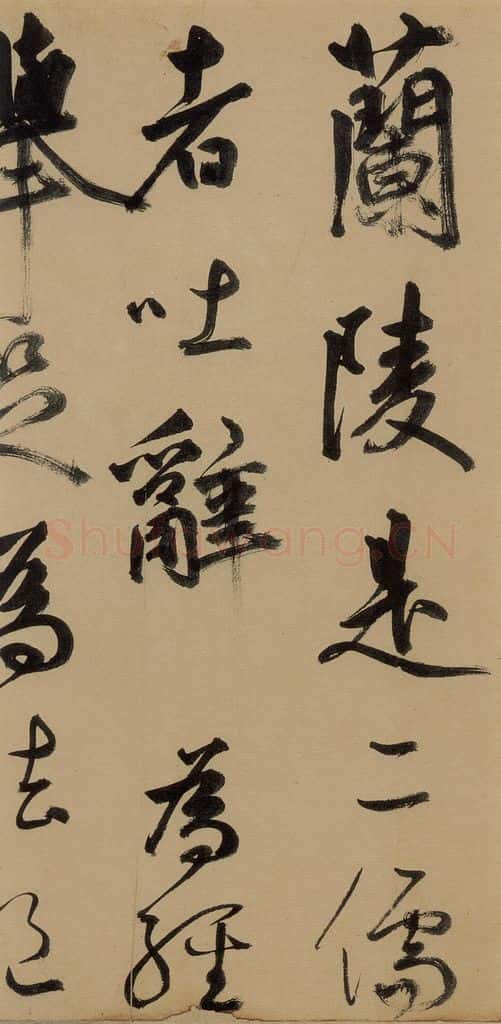 蘭陵是二儒
者吐辭為經
舉足為法
Shufawang.CN